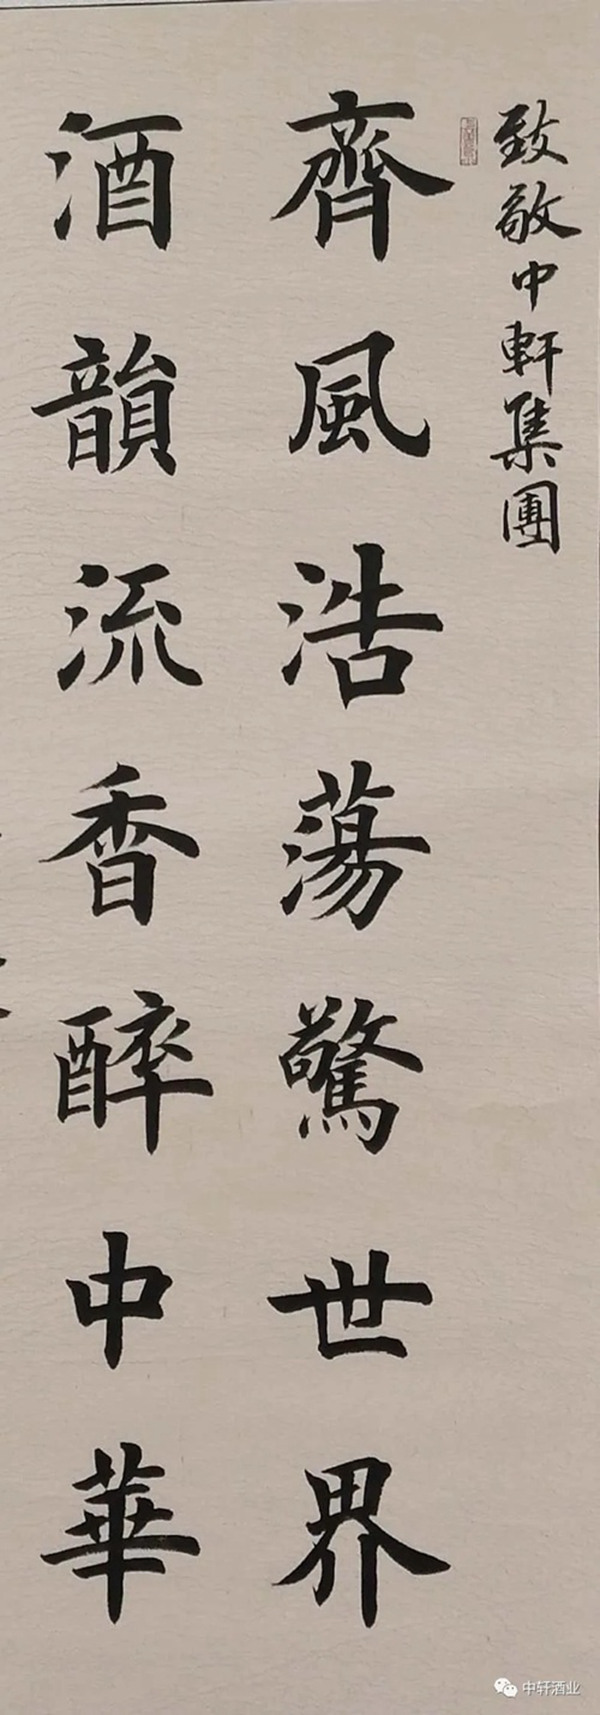 致敬中軒集團
齊風浩蕩驚世界
酒韻流香醉中華
中轩酒业